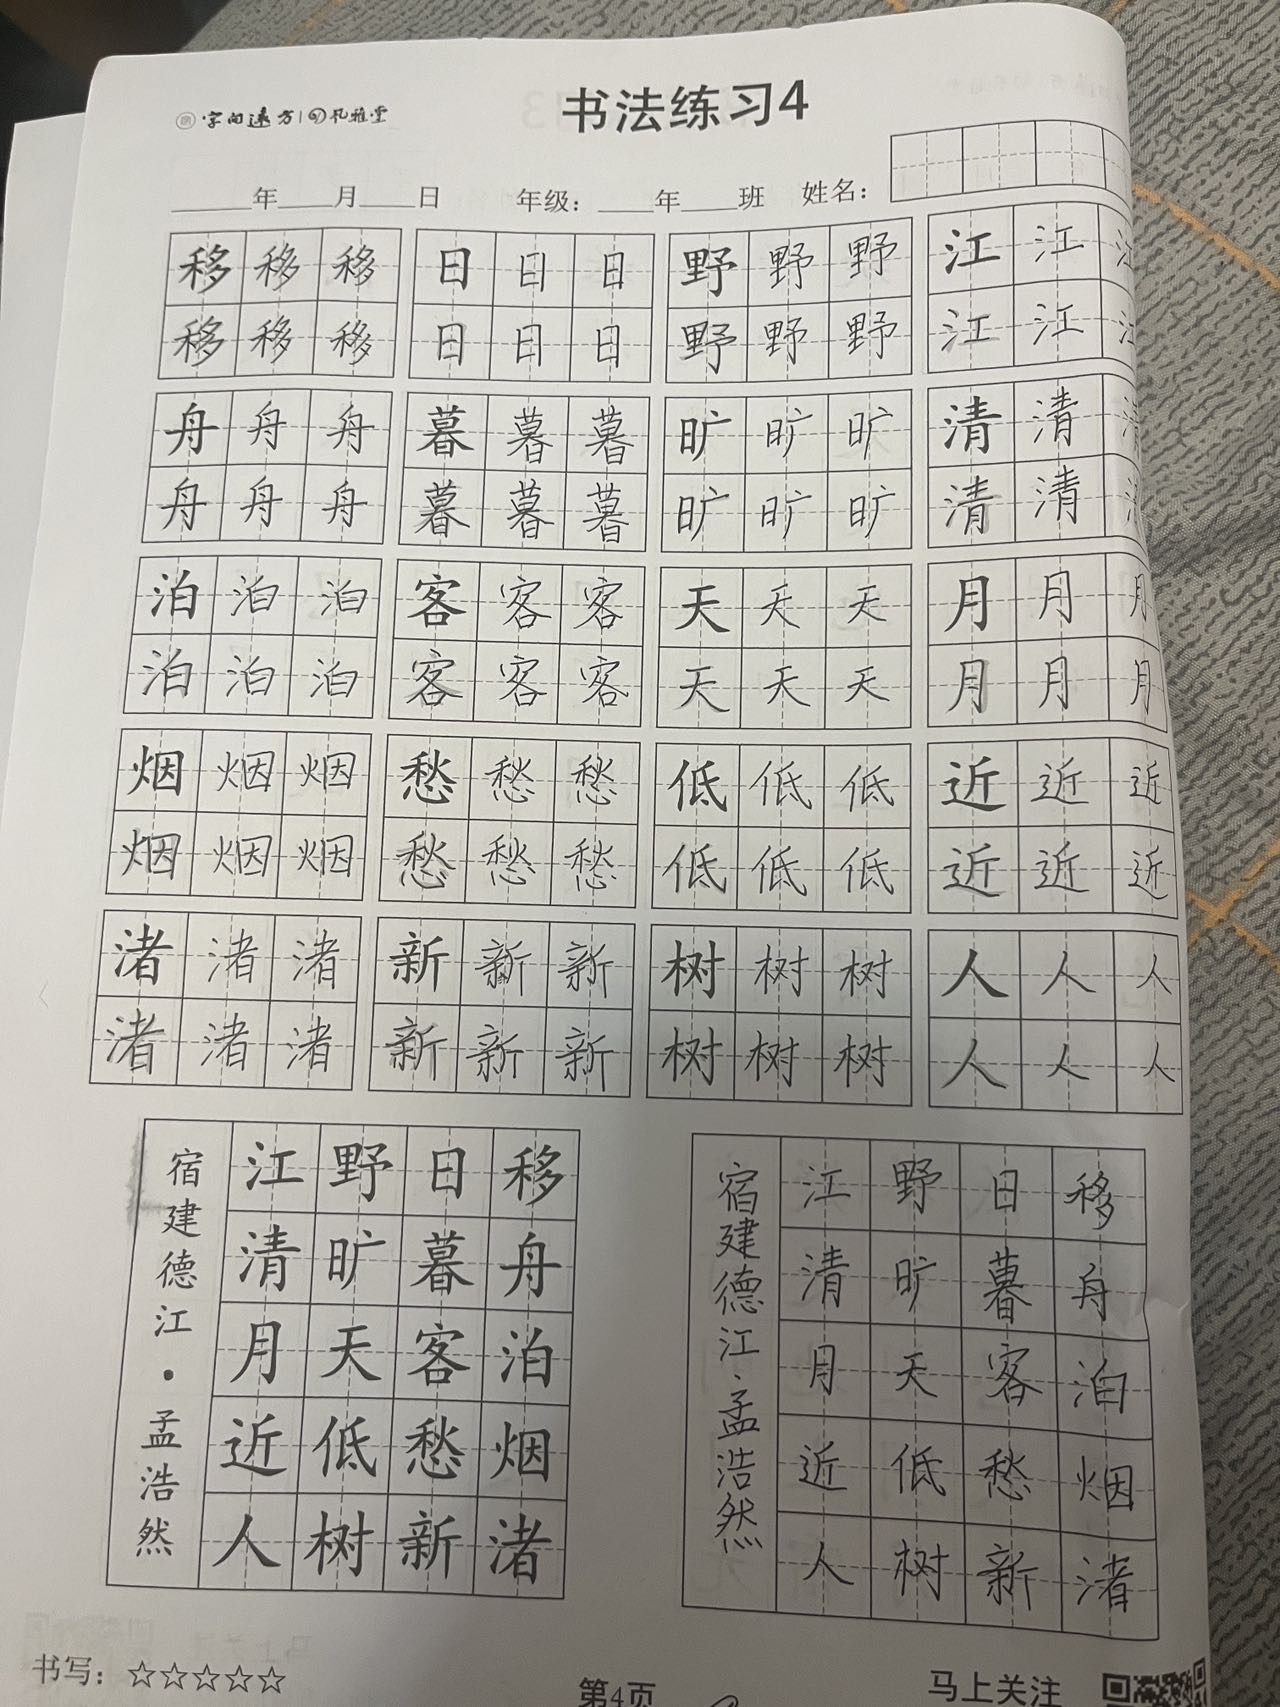 字间远方 习孔雅堂
书法练习4
年 月 日 年级: 年 班 姓名:
移移移 日日日 野野野 江江江
移移移 日日日 野野野 江江江
舟舟舟 暮暮暮 旷旷旷 清清清
舟舟舟 暮暮暮 旷旷旷 清清清
泊泊泊 客客客 天天天 月月月
泊泊泊 客客客 天天天 月月月
烟烟烟 愁愁愁 低低低 近近近
烟烟烟 愁愁愁 低低低 近近近
渚渚渚 新新新 树树树 人人人
渚渚渚 新新新 树树树 人人人
移舟泊烟渚
日暮客愁新
野旷天低树
江清月近人
宿建德江·孟浩然
移舟泊烟渚
日暮客愁新
野旷天低树
江清月近人
宿建德江·孟浩然
书写:☆☆☆☆☆
第4页
马上关注